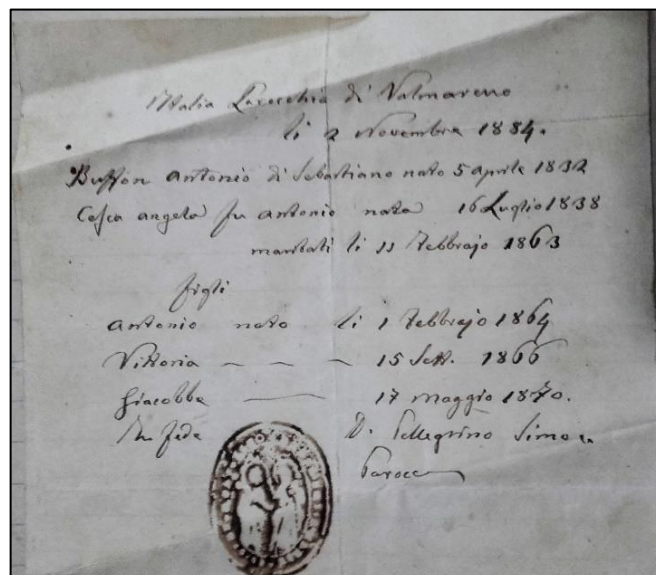 Italia Parocchia di Valmareno
li 2 Novembre 1884.
Buffon Antonio di Sebastiano nato 5 aprile 1832
Cesca angela fu antonio nata 16 Luglio 1838
maritati li 11 Febbrajo 1863
figli
antonio nato li 1 Febbrajo 1864
Vittoria — — — 15 Sett. 1866
Giacobbe — 17 maggio 1870.
In fede D. Pellegrino Simon
Paroco